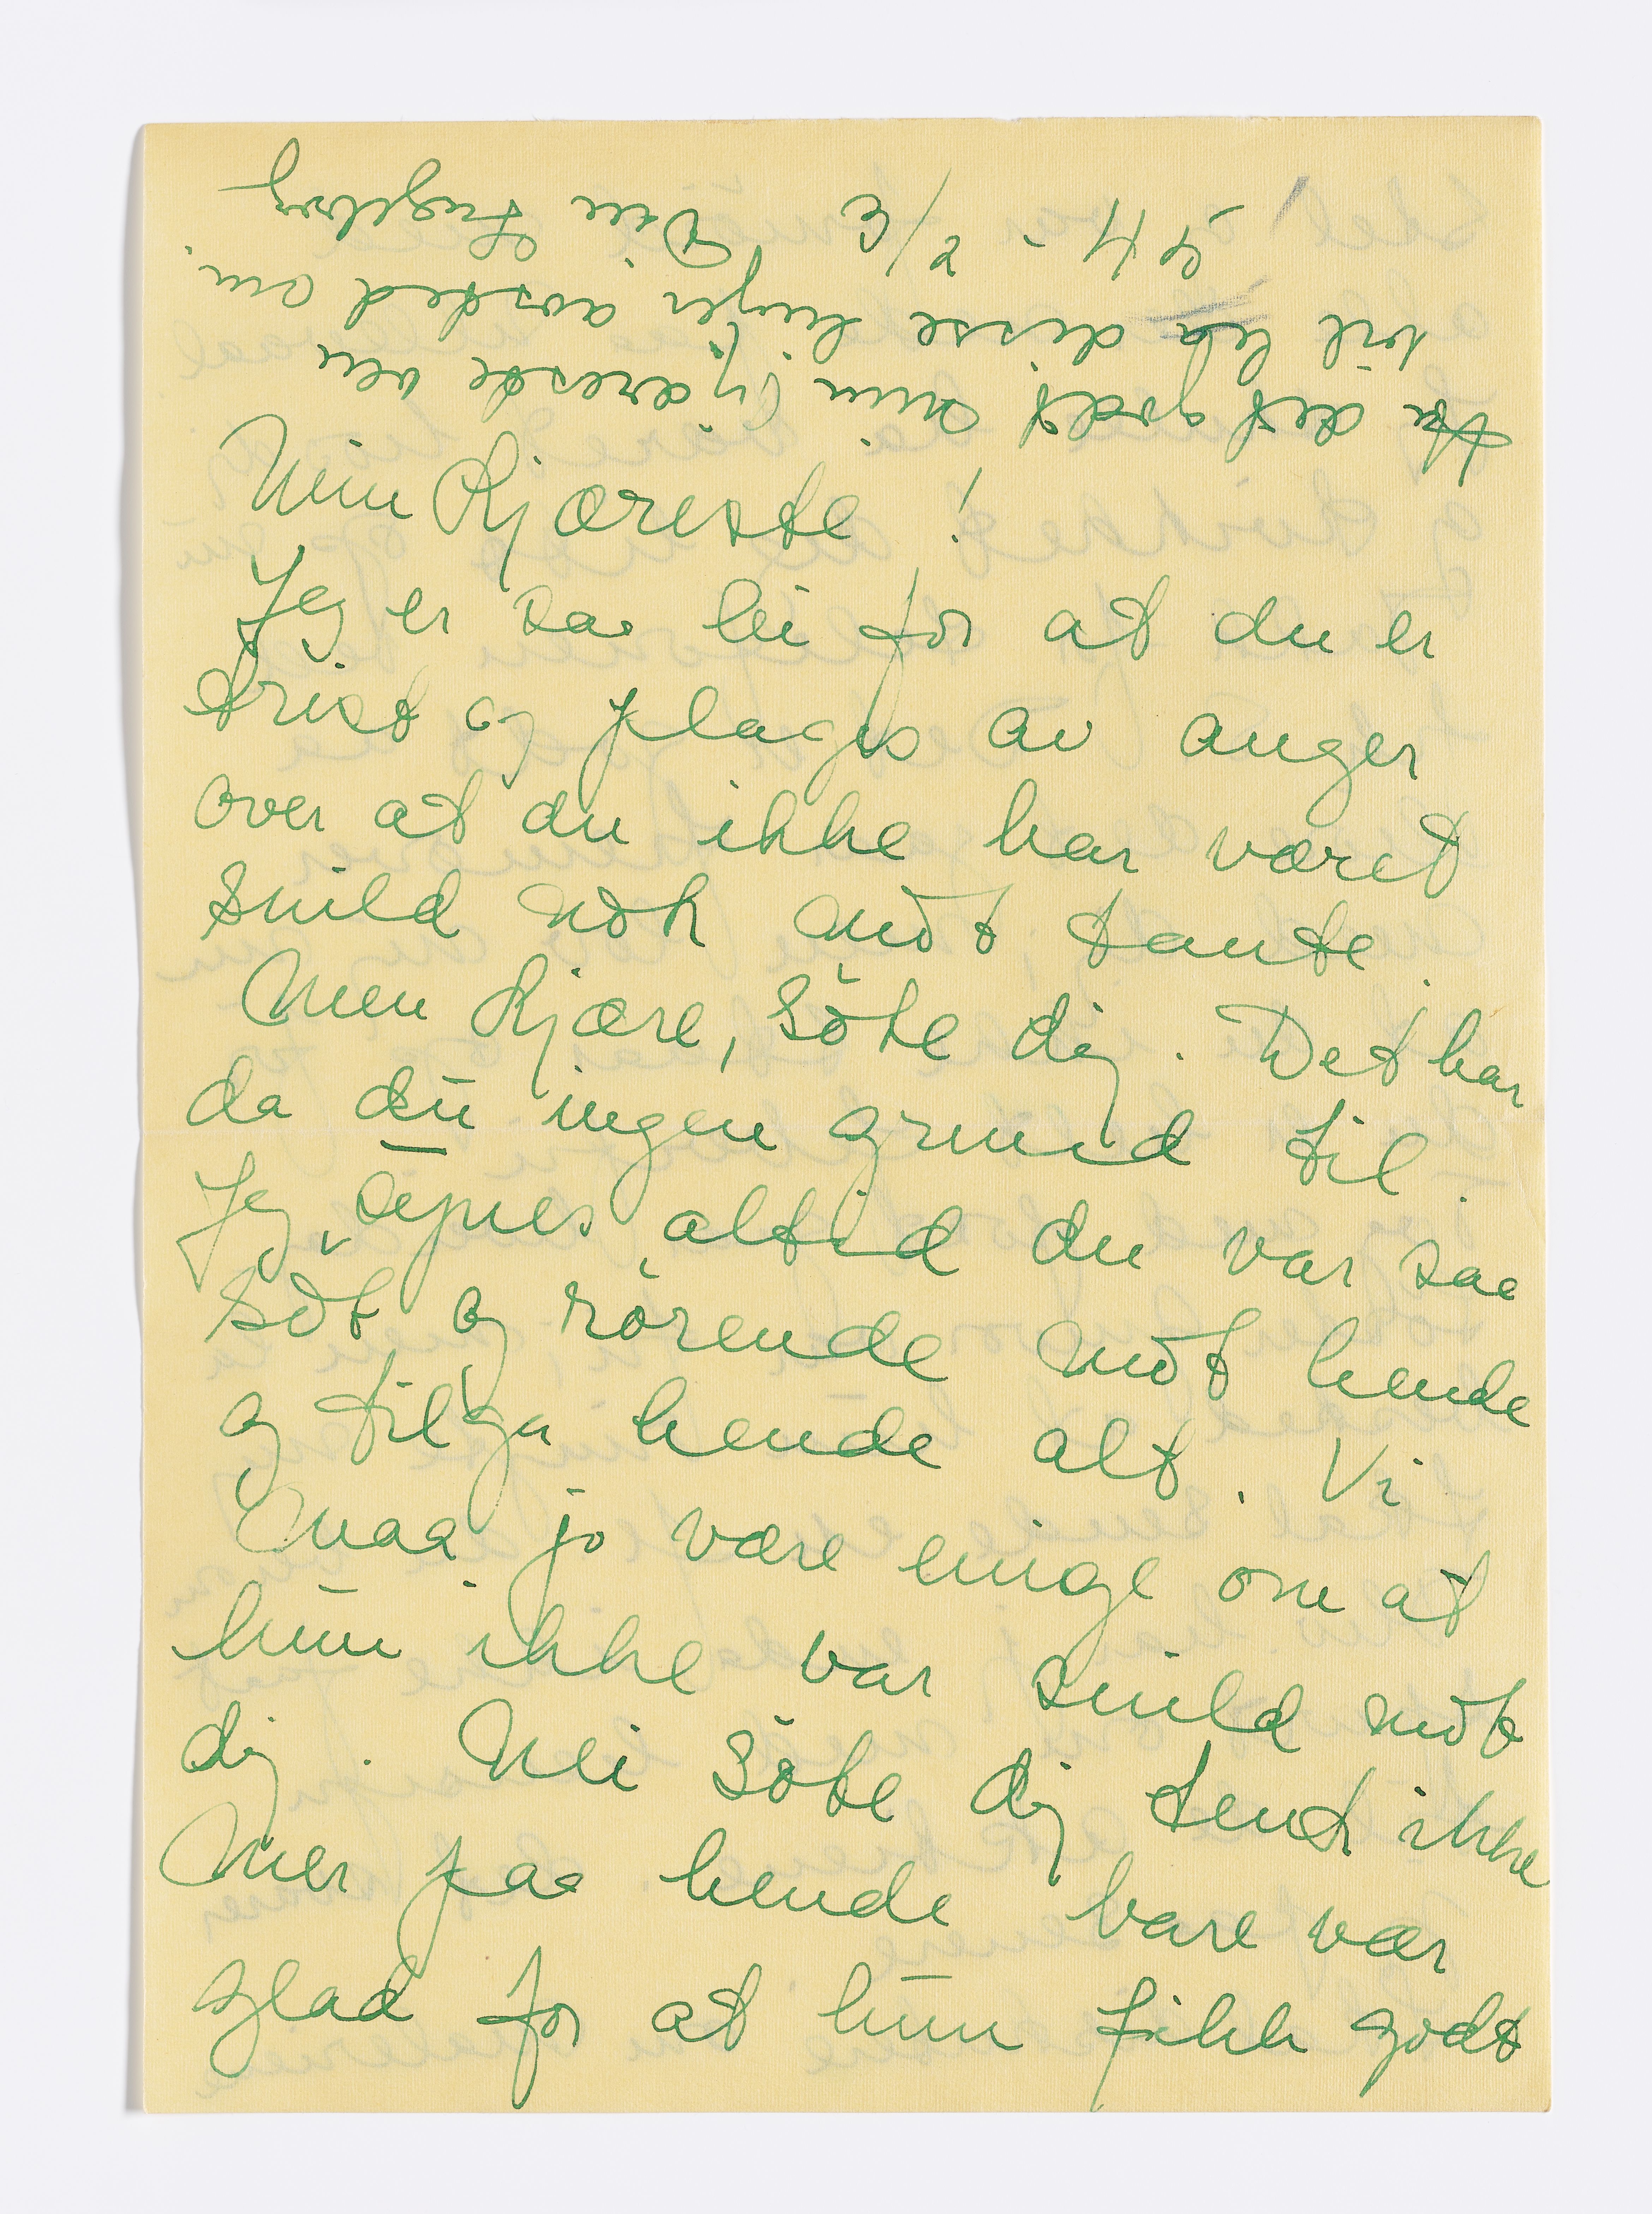 Ha det godt min kjæreste ven
vil disse linjer avsted
Din Ingeborg
Min Kjæreste!
Jeg er saa lei for at du er
trist og plages av anger
over at du ikke har været
snild nok mot tante.
Men kjære, söte dig. Det har
da du ingen grund til.
Jeg synes altid du var saa
söt og rörende mot hende
og tilga hende alt. Vi
maa jo være enige om at
hun ikke var snild mot
dig. Nei söte dig tenk ikke
mer paa hende bare vær
glad for at hun fikk godt